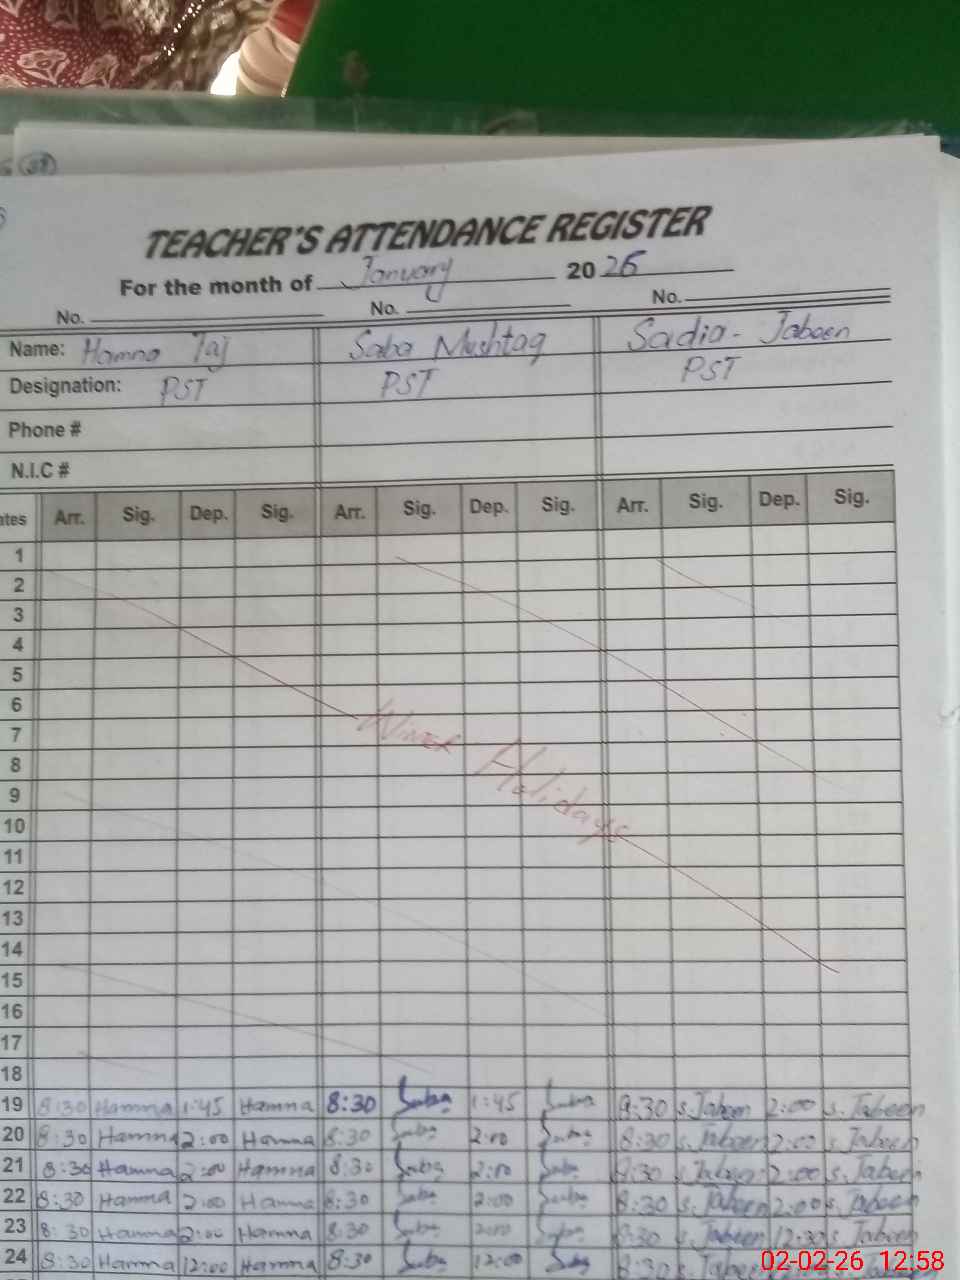 TEACHER'S ATTENDANCE REGISTER
For the month of January 2026
No. No. No.
Name: Hamna Taj Saba Mushtaq Sadia - Jabeen
Designation: PST PST PST
Phone #
N.I.C #
ates Arr. Sig. Dep. Sig. Arr. Sig. Dep. Sig. Arr. Sig. Dep. Sig.
1
2
3
4
5
6
7
Winter Holidays
8
9
10
11
12
13
14
15
16
17
18
19 8:30 Hamna 1:45 Hamna 8:30 Saba 1:45 Saba 8:30 S. Jabeen 2:00 S. Jabeen
20 8:30 Hamna 2:00 Hamna 8:30 Saba 2:00 Saba 8:30 S. Jabeen 2:00 S. Jabeen
21 8:30 Hamna 2:00 Hamna 8:30 Saba 2:00 Saba 8:30 S. Jabeen 2:00 S. Jabeen
22 8:30 Hamna 2:00 Hamna 8:30 Saba 2:00 Saba 8:30 S. Jabeen 2:00 S. Jabeen
23 8:30 Hamna 2:00 Hamna 8:30 Saba 2:00 Saba 8:30 S. Jabeen 12:30 S. Jabeen
24 8:30 Hamna 12:00 Hamna 8:30 Saba 12:00 Saba 8:30 S. Jabeen
02-02-26 12:58